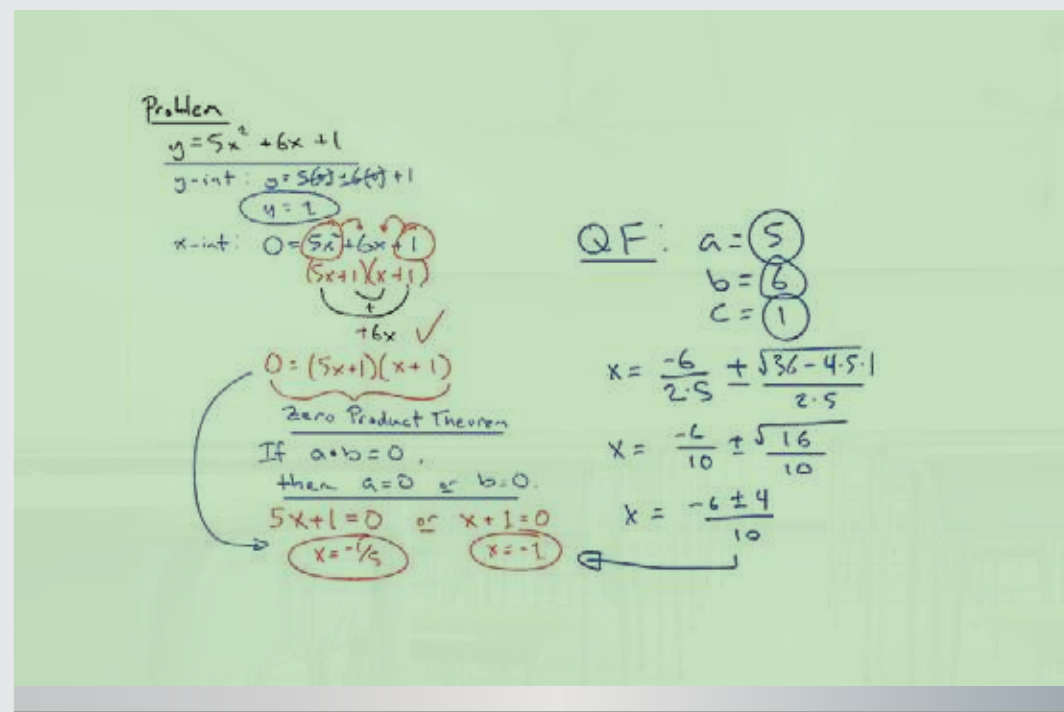 Problem
y = 5x² + 6x + 1
y-int: y = 5(0) + 6(0) + 1
y = 1
x-int: 0 = 5x² + 6x + 1
(5x+1)(x+1)
+
+6x ✓
0 = (5x+1)(x+1)
Zero Product Theorem
If a•b = 0,
then a=0 or b=0.
5x+1=0 or x+1=0
x = -1/5 x = -1
QF: a = 5
b = 6
c = 1
x = -6/2·5 ± √36-4·5·1/2·5
x = -6/10 ± √16/10
x = -6 ± 4/10